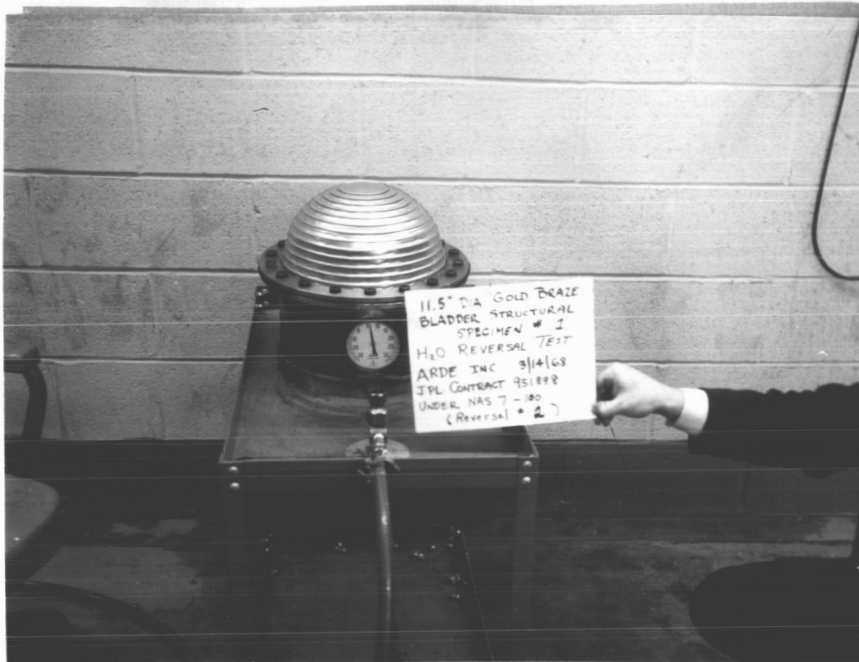 11.5" DIA GOLD BRAZE
BLADDER STRUCTURAL
SPECIMEN # 1
H2O REVERSAL TEST
ARDE INC 3/14/68
JPL CONTRACT 951898
UNDER NAS 7-100
(Reversal # 2)